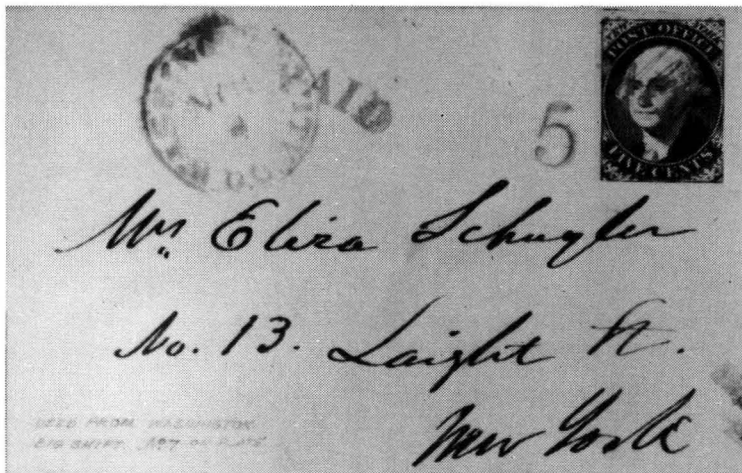 PAID
5
POST OFFICE
FIVE CENTS
Mrs Eliza Schuyler
No. 13. Laight St.
New York
USED FROM WASHINGTON
BIG SHIFT. ON PLATE